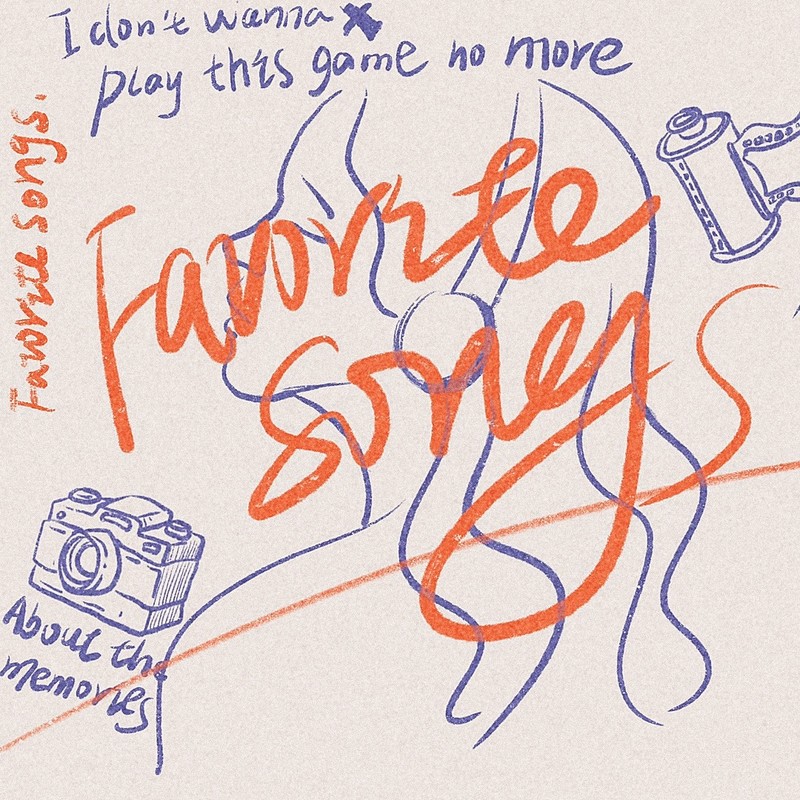 I don't wanna
play this game no more
Favorite songs.
Favorite
songs
About the
memories